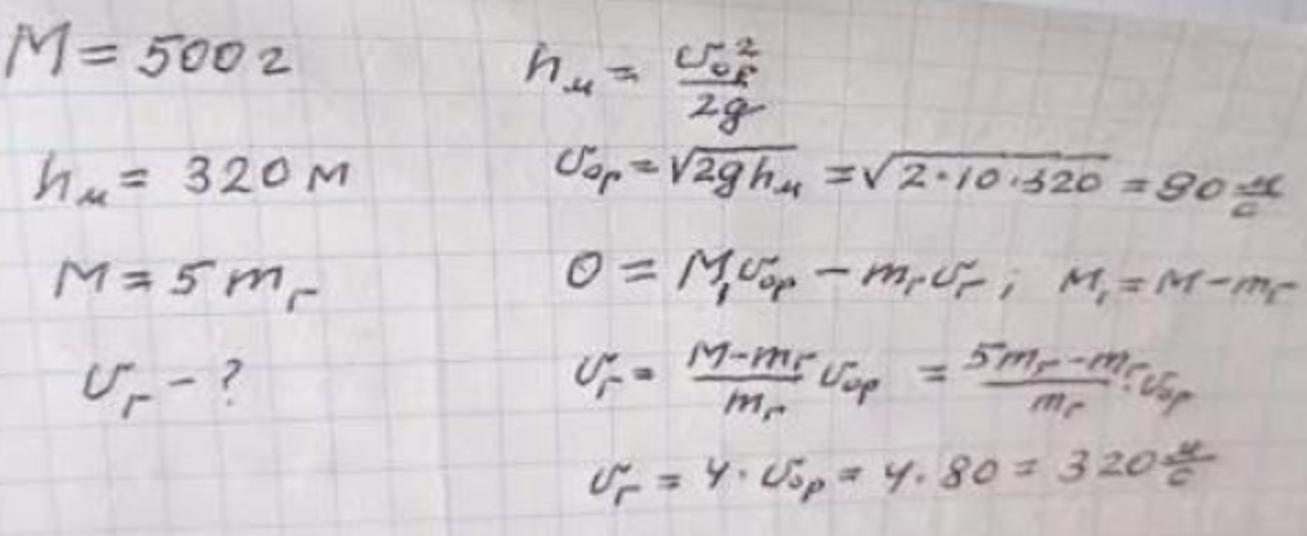 M = 500 г
hм = 320 м
M = 5 mг
υг - ?
hм = υор² / 2g
υор = √2ghм = √2·10·320 = 80 м/с
0 = M₁υор - mгυг ; M₁ = M - mг
υг = M-mг / mг υор = 5mг-mг / mг · υор
υг = 4 · υор = 4 · 80 = 320 м/с